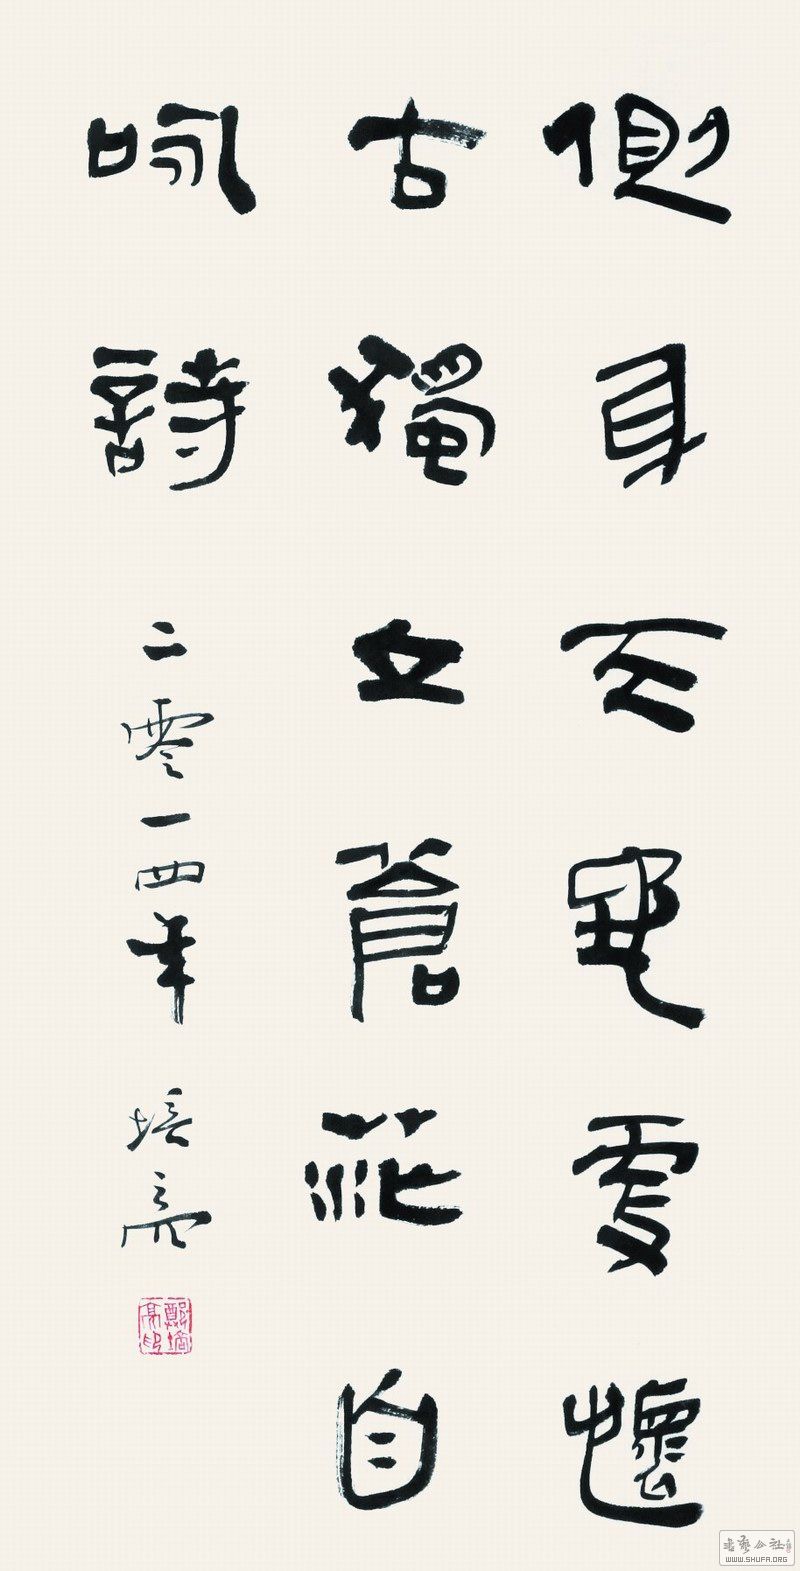 側身天地更懷
古獨立蒼茫自
咏詩
二零一四年 培亮
鄭培亮印
书艺公社
WWW.SHUFA.ORG